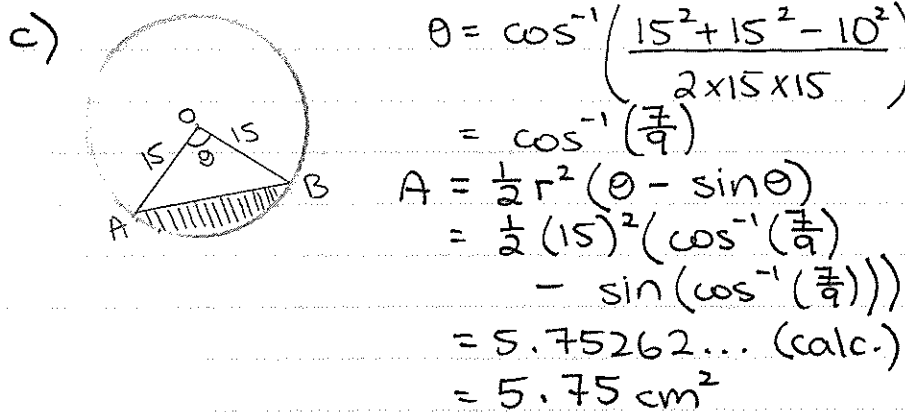 c)
θ = cos⁻¹ ( (15² + 15² - 10²) / (2×15×15) )
= cos⁻¹ (7/9)
O
15 θ 15
A B
A = ½ r² (θ - sinθ)
= ½ (15)² (cos⁻¹ (7/9)
- sin (cos⁻¹ (7/9)))
= 5.75262... (calc.)
= 5.75 cm²